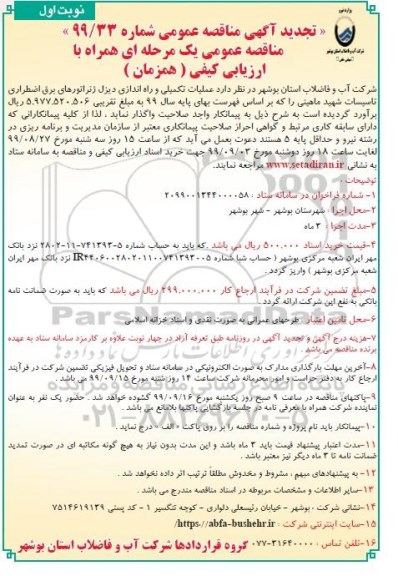 نوبت اول
« تجدید آگهی مناقصه عمومی شماره ۹۹/۳۳ »
مناقصه عمومی یک مرحله ای همراه با
ارزیابی کیفی ( همزمان )
شرکت آب و فاضلاب استان بوشهر در نظر دارد عملیات تکمیلی و راه اندازی دیزل ژنراتورهای برق اضطراری
تاسیسات شهید ماهینی را که بر اساس فهرست بهای پایه سال ۹۹ به مبلغ تقریبی ۵،۹۷۷،۵۲۰،۵۰۶ ریال
برآورد گردیده است به شرح ذیل به پیمانکار واجد صلاحیت واگذار نماید ، لذا از کلیه پیمانکارانی که
دارای سابقه کاری مرتبط و گواهی احراز صلاحیت پیمانکاری معتبر از سازمان مدیریت و برنامه ریزی در
رشته نیرو و حداقل پایه ۵ هستند دعوت بعمل می آید که از ساعت ۱۵ روز سه شنبه مورخ ۹۹/۰۸/۲۷
لغایت ساعت ۱۸ روز دوشنبه مورخ ۹۹/۰۹/۰۳ جهت خرید اسناد ارزیابی کیفی و مناقصه به سامانه ستاد
به نشانی www.setadiran.ir مراجعه نمایند.
توضیحات :
۱- شماره فراخوان در سامانه ستاد : ۲۰۹۹۰۰۱۳۴۴۰۰۰۰۵۸
۲-محل اجرا : شهرستان بوشهر – شهر بوشهر
۳-مدت اجرا : ۳ ماه
۴-قیمت خرید اسناد ۵۰۰،۰۰۰ ریال می باشد .که باید به حساب شماره ۵-۷۴۱۳۹۳-۱۱-۲۸۰۲ نزد بانک
مهر ایران شعبه مرکزی بوشهر ( حساب شبا شماره IR۴۴۰۶۰۰۲۸۰۲۰۱۱۰۰۷۴۱۳۹۳۰۰۵ نزد بانک مهر ایران
شعبه مرکزی بوشهر ) واریز گردد .
۵-مبلغ تضمین شرکت در فرآیند ارجاع کار ۲۹۹،۰۰۰،۰۰۰ ریال می باشد که باید به صورت ضمانت نامه
بانکی به نفع این شرکت ارائه گردد .
۶-محل تامین اعتبار : طرحهای عمرانی به صورت نقدی و اسناد خزانه اسلامی
۷-هزینه درج آگهی و تجدید آگهی در روزنامه طبق تعرفه آزاد در چهار نوبت علاوه بر کارمزد سامانه ستاد به عهده
برنده مناقصه می باشد .
۸-آخرین مهلت بارگذاری مدارک به صورت الکترونیکی در سامانه ستاد و تحویل فیزیکی تضمین شرکت در فرآیند
ارجاع کار به دفتر حراست و امور محرمانه شرکت ساعت ۱۴ روز شنبه مورخ ۹۹/۰۹/۱۵ می باشد.
۹-پاکتهای مناقصه در ساعت ۹ صبح روز یکشنبه مورخ ۹۹/۰۹/۱۶ گشوده خواهد شد . حضور یک نفر به عنوان
نماینده شرکت همراه با معرفی نامه در جلسه بازگشایی پاکتها بلامانع می باشد .
۱۰-پیمانکار باید نام پروژه و شماره مناقصه را بر روی پاکت « الف » درج نماید .
۱۱-مدت اعتبار پیشنهاد قیمت باید ۳ ماه باشد و این مدت بدون نیاز به هیچ گونه مکاتبه ای در صورت تمدید
ضمانت نامه تا ۳ ماه دیگر نیز معتبر باشد .
۱۲- به پیشنهادهای مبهم ، مشروط و مخدوش مطلقاً ترتیب اثر داده نخواهد شد .
۱۳-سایر اطلاعات و مشخصات مربوطه در اسناد مناقصه مندرج می باشد .
۱۴-نشانی شرکت : بوشهر – خیابان رئیسعلی دلواری – کوچه تنگسیر ۱ – کد پستی ۷۵۱۴۶۱۹۱۳۹
۱۵-سایت اینترنتی شرکت : https://abfa-bushehr.ir/
۱۶-تلفن تماس : ۳۱۶۴۰۰۰۰-۰۷۷ گروه قراردادها شرکت آب و فاضلاب استان بوشهر